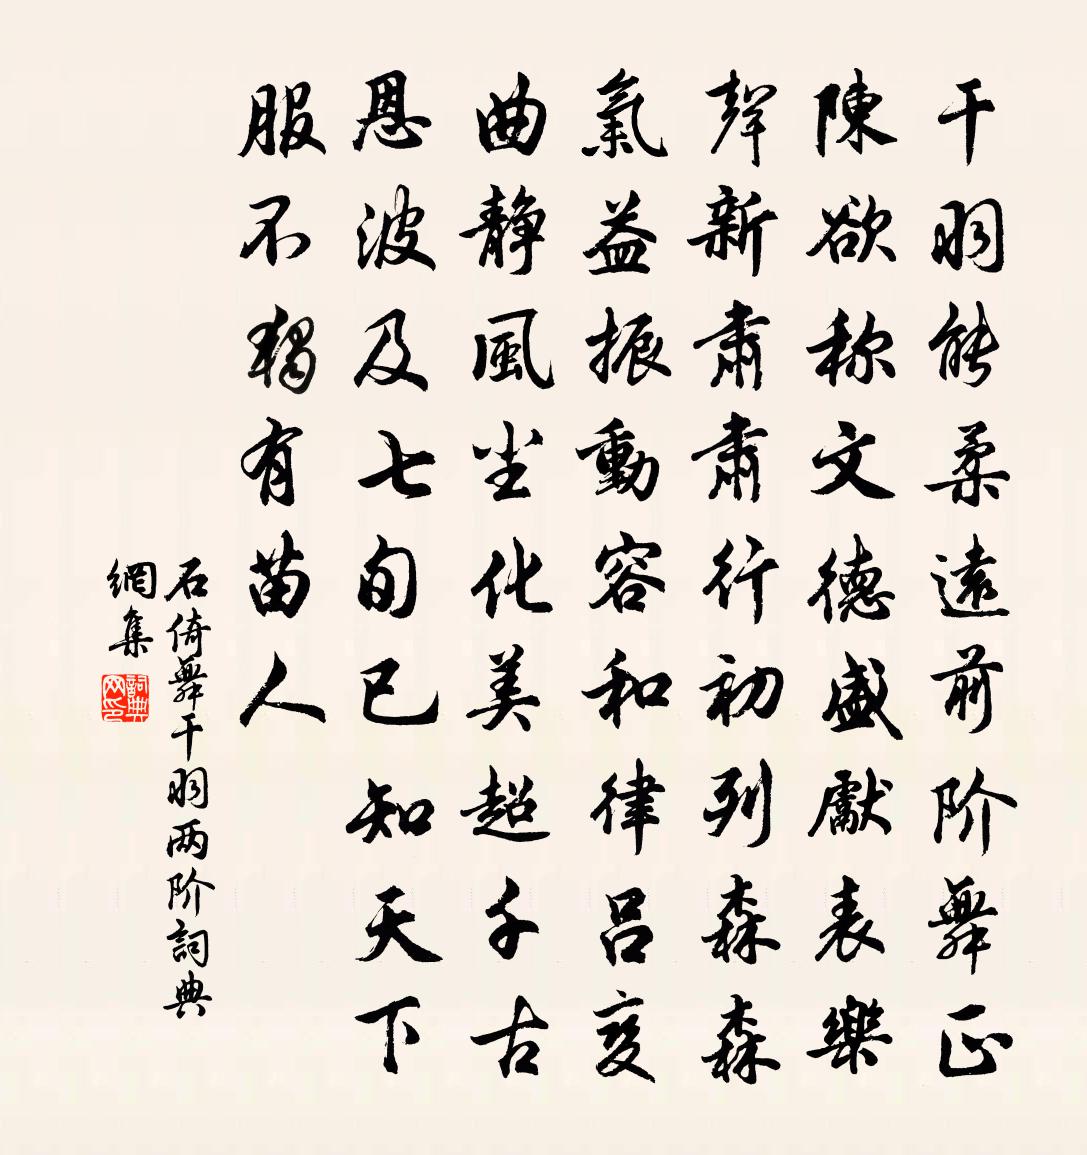 干羽能柔遠前阶舞正
陳欲称文德盛獻表樂
聲新肅肅行初列森森
氣益振動容和律呂变
曲静風尘化美超千古
恩波及七旬已知天下
服不独有苗人
石倚舞干羽两阶詞典
網集
詞典
网印